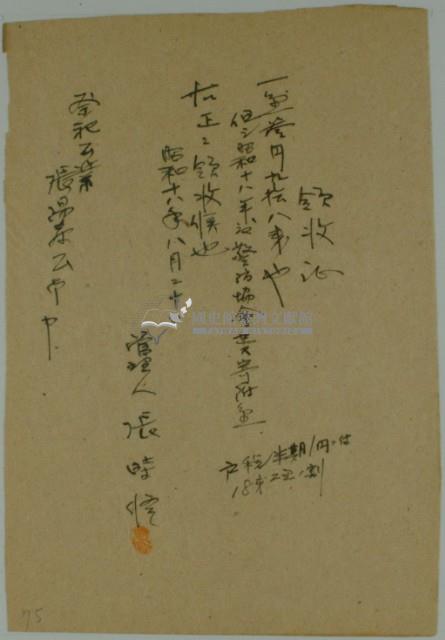 領收証
一金壹円九拾八錢也
但シ昭和十八年度警防協會費寄附金
右正ニ領收候也
昭和十八年八月二十
管理人 張
祭祀公業
張
戸税半期1円ニ付
18錢
國史館臺灣文獻館
75